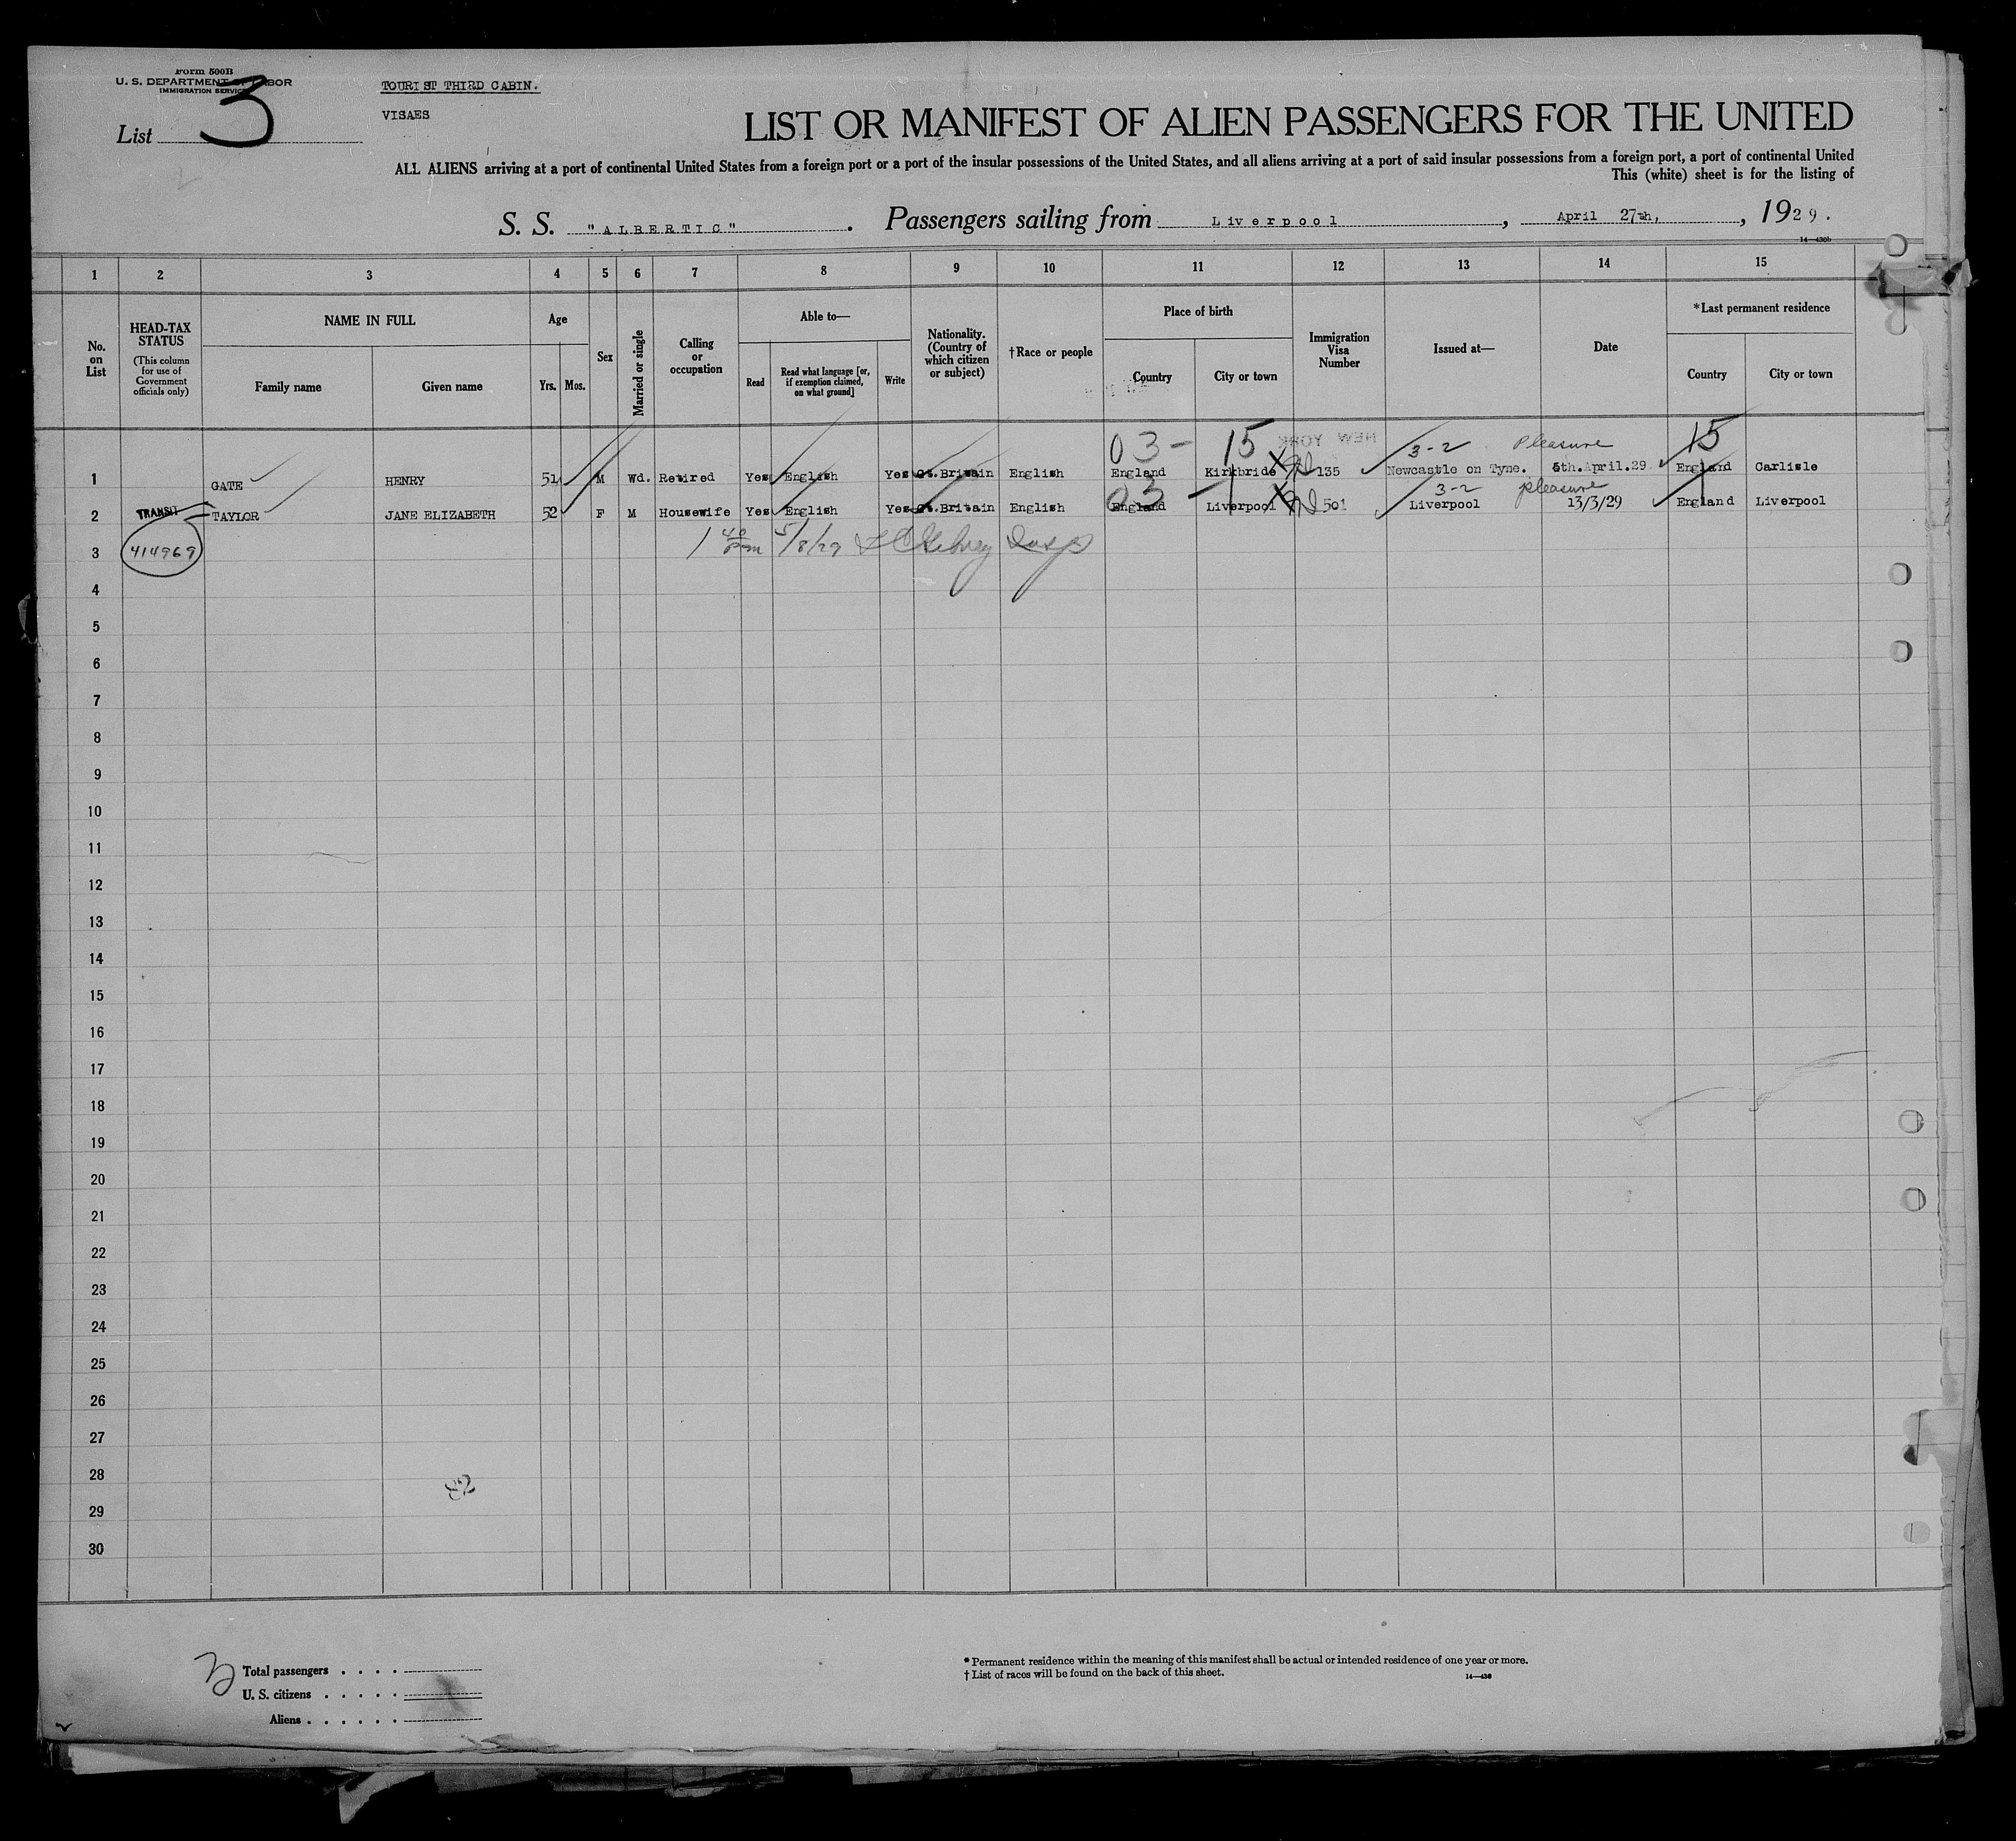 Form 500B
U. S. DEPARTMENT OF LABOR
IMMIGRATION SERVICE
List 3
TOURIST THIRD CABIN.
VISAES
LIST OR MANIFEST OF ALIEN PASSENGERS FOR THE UNITED
ALL ALIENS arriving at a port of continental United States from a foreign port or a port of the insular possessions of the United States, and all aliens arriving at a port of said insular possessions from a foreign port, a port of continental United
This (white) sheet is for the listing of
S. S. "ALBERTIC". Passengers sailing from Liverpool, April 27th, 1929.
14—430b
1 2 3 4 5 6 7 8 9 10 11 12 13 14 15
No. on List
HEAD-TAX STATUS
(This column for use of Government officials only)
NAME IN FULL
Family name Given name
Age
Yrs. Mos.
Sex
Married or single
Calling or occupation
Able to—
Read
Read what language [or, if exemption claimed, on what ground]
Write
Nationality. (Country of which citizen or subject)
†Race or people
Place of birth
Country City or town
Immigration Visa Number
Issued at—
Date
*Last permanent residence
Country City or town
03- 15 NEW YORK 3-2 Pleasure 15
1 GATE HENRY 51 M Wd. Retired Yes English Yes Gt.Britain English England Kirkbride 135 Newcastle on Tyne. 5th.April.29 England Carlisle
03 3-2 pleasure
2 TRANSIT TAYLOR JANE ELIZABETH 52 F M Housewife Yes English Yes Gt.Britain English England Liverpool 501 Liverpool 13/3/29 England Liverpool
3 414969 1 40 pm 5/8/29 Insp
4
5
6
7
8
9
10
11
12
13
14
15
16
17
18
19
20
21
22
23
24
25
26
27
28
29
30
Total passengers . . . .
U. S. citizens . . . . .
Aliens . . . . . .
* Permanent residence within the meaning of this manifest shall be actual or intended residence of one year or more.
† List of races will be found on the back of this sheet.
14—430